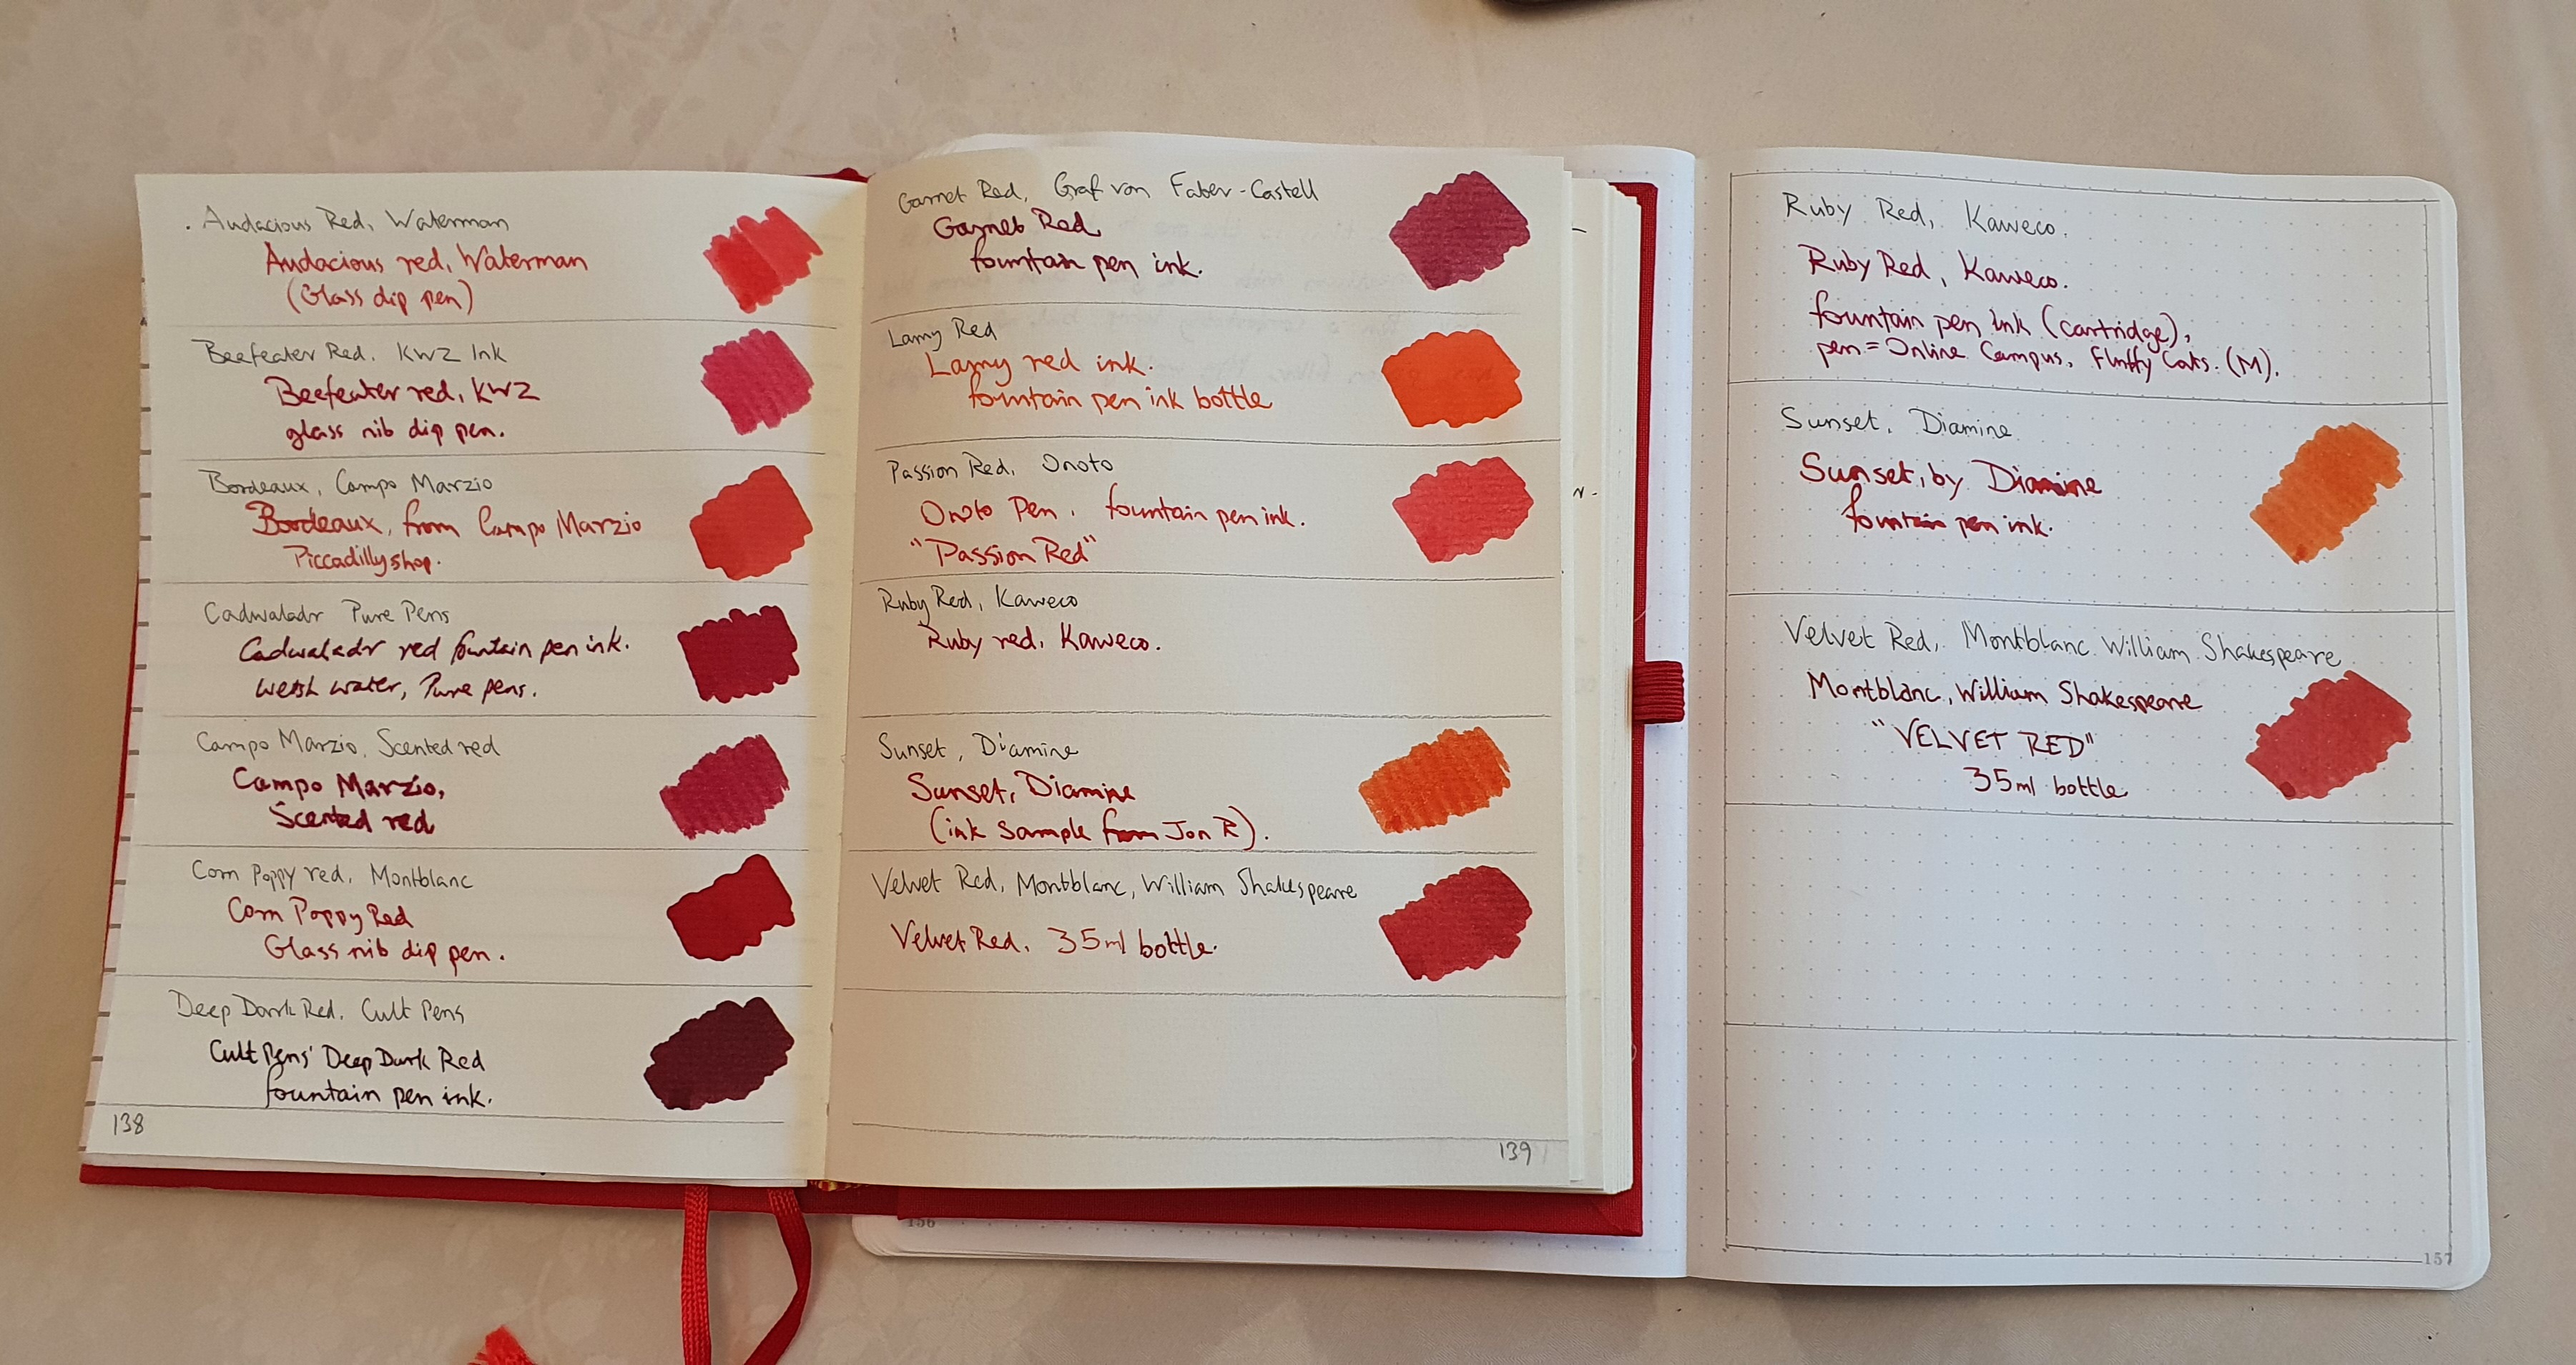 Audacious Red, Waterman
Audacious red, Waterman
(Glass dip pen)
Beefeater Red. KWZ Ink
Beefeater red, KWZ
glass nib dip pen.
Bordeaux, Campo Marzio
Bordeaux, from Campo Marzio
Piccadilly shop.
Cadwaladr Pure Pens
Cadwaladr red fountain pen ink.
Welsh water, Pure pens.
Campo Marzio, Scented red
Campo Marzio,
Scented red
Corn Poppy red, Montblanc
Corn Poppy Red
Glass nib dip pen.
Deep Dark Red, Cult Pens
Cult Pens' Deep Dark Red
fountain pen ink.
138
Garnet Red, Graf von Faber-Castell
Garnet Red
fountain pen ink.
Lamy Red
Lamy red ink.
fountain pen ink bottle
Passion Red, Onoto
Onoto Pen, fountain pen ink.
"Passion Red"
Ruby Red, Kaweco
Ruby red, Kaweco.
Sunset, Diamine
Sunset, Diamine
(ink sample from Jon R).
Velvet Red, Montblanc, William Shakespeare
Velvet Red, 35ml bottle.
139
156
Ruby Red, Kaweco.
Ruby Red, Kaweco.
fountain pen ink (cartridge),
pen = Online Campus, Fluffy Cats. (M).
Sunset, Diamine
Sunset, by Diamine
fountain pen ink.
Velvet Red, Montblanc William Shakespeare
Montblanc, William Shakespeare
"VELVET RED"
35ml bottle
157